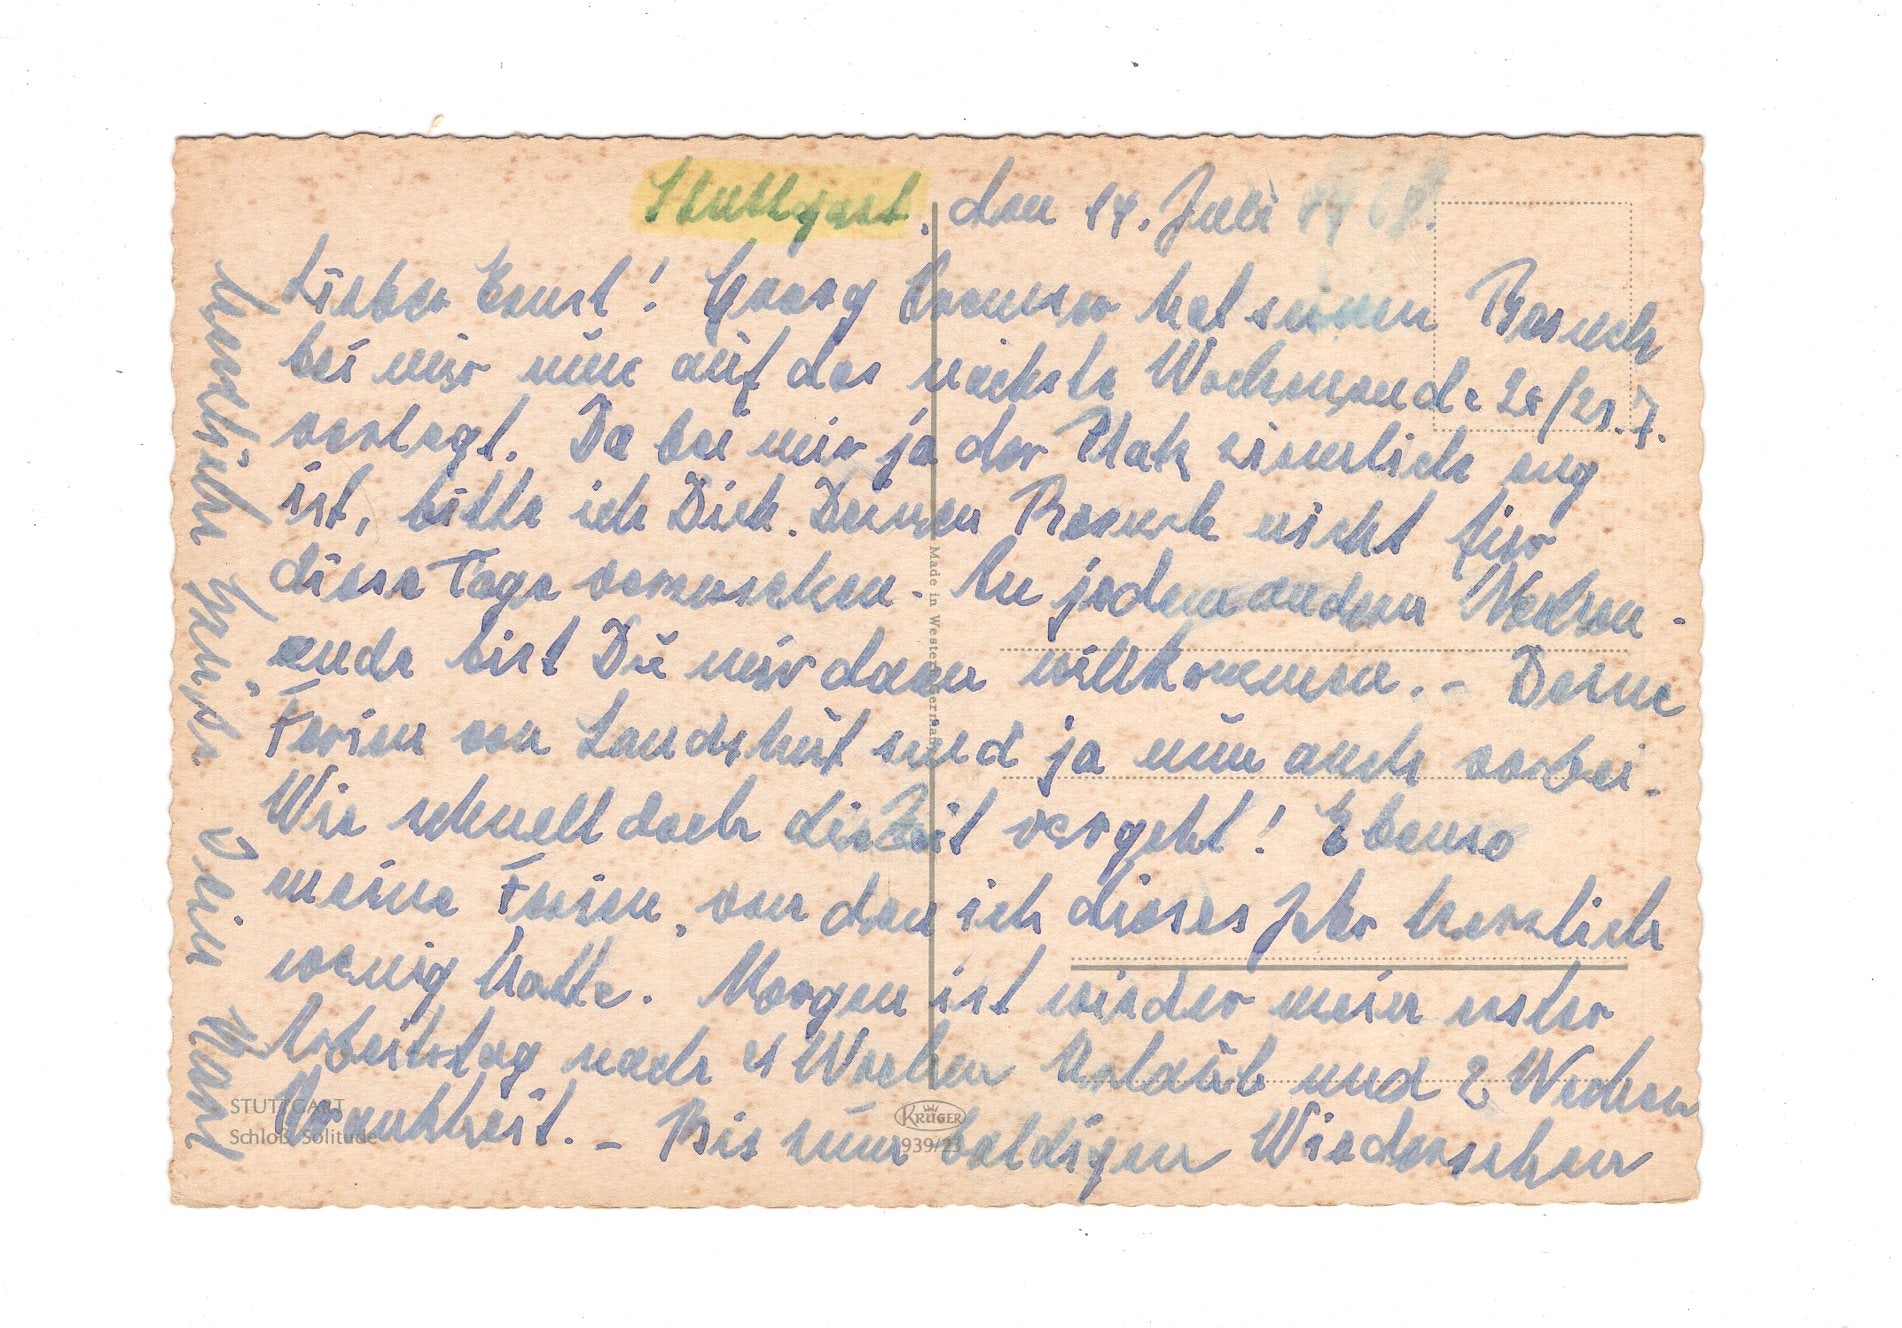 Stuttgart, den 14. Juli 1968.
Lieber Ernst! Georg hat seinen Besuch
bei mir nun auf das nächste Wochenende 20/21.7.
verlegt. Da bei mir ja der Platz ziemlich eng
ist, bitte ich Dich, Deinen Besuch nicht für
diese Tage vorzusehen. An jedem andern Wochen-
ende bist Du mir dann willkommen. – Deine
Ferien von Landshut sind ja nun auch vorbei.
Wie schnell doch die Zeit vergeht! Ebenso
meine Ferien, von den ich dieses Jahr herzlich
wenig hatte. Morgen ist wieder mein erster
Arbeitstag nach 4 Wochen Urlaub und 2 Wochen
Krankheit. – Bis zum baldigen Wiedersehen
herzliche Grüße Dein Karl
Made in Western Germany
STUTTGART
Schloß Solitude
KRÜGER
939/23